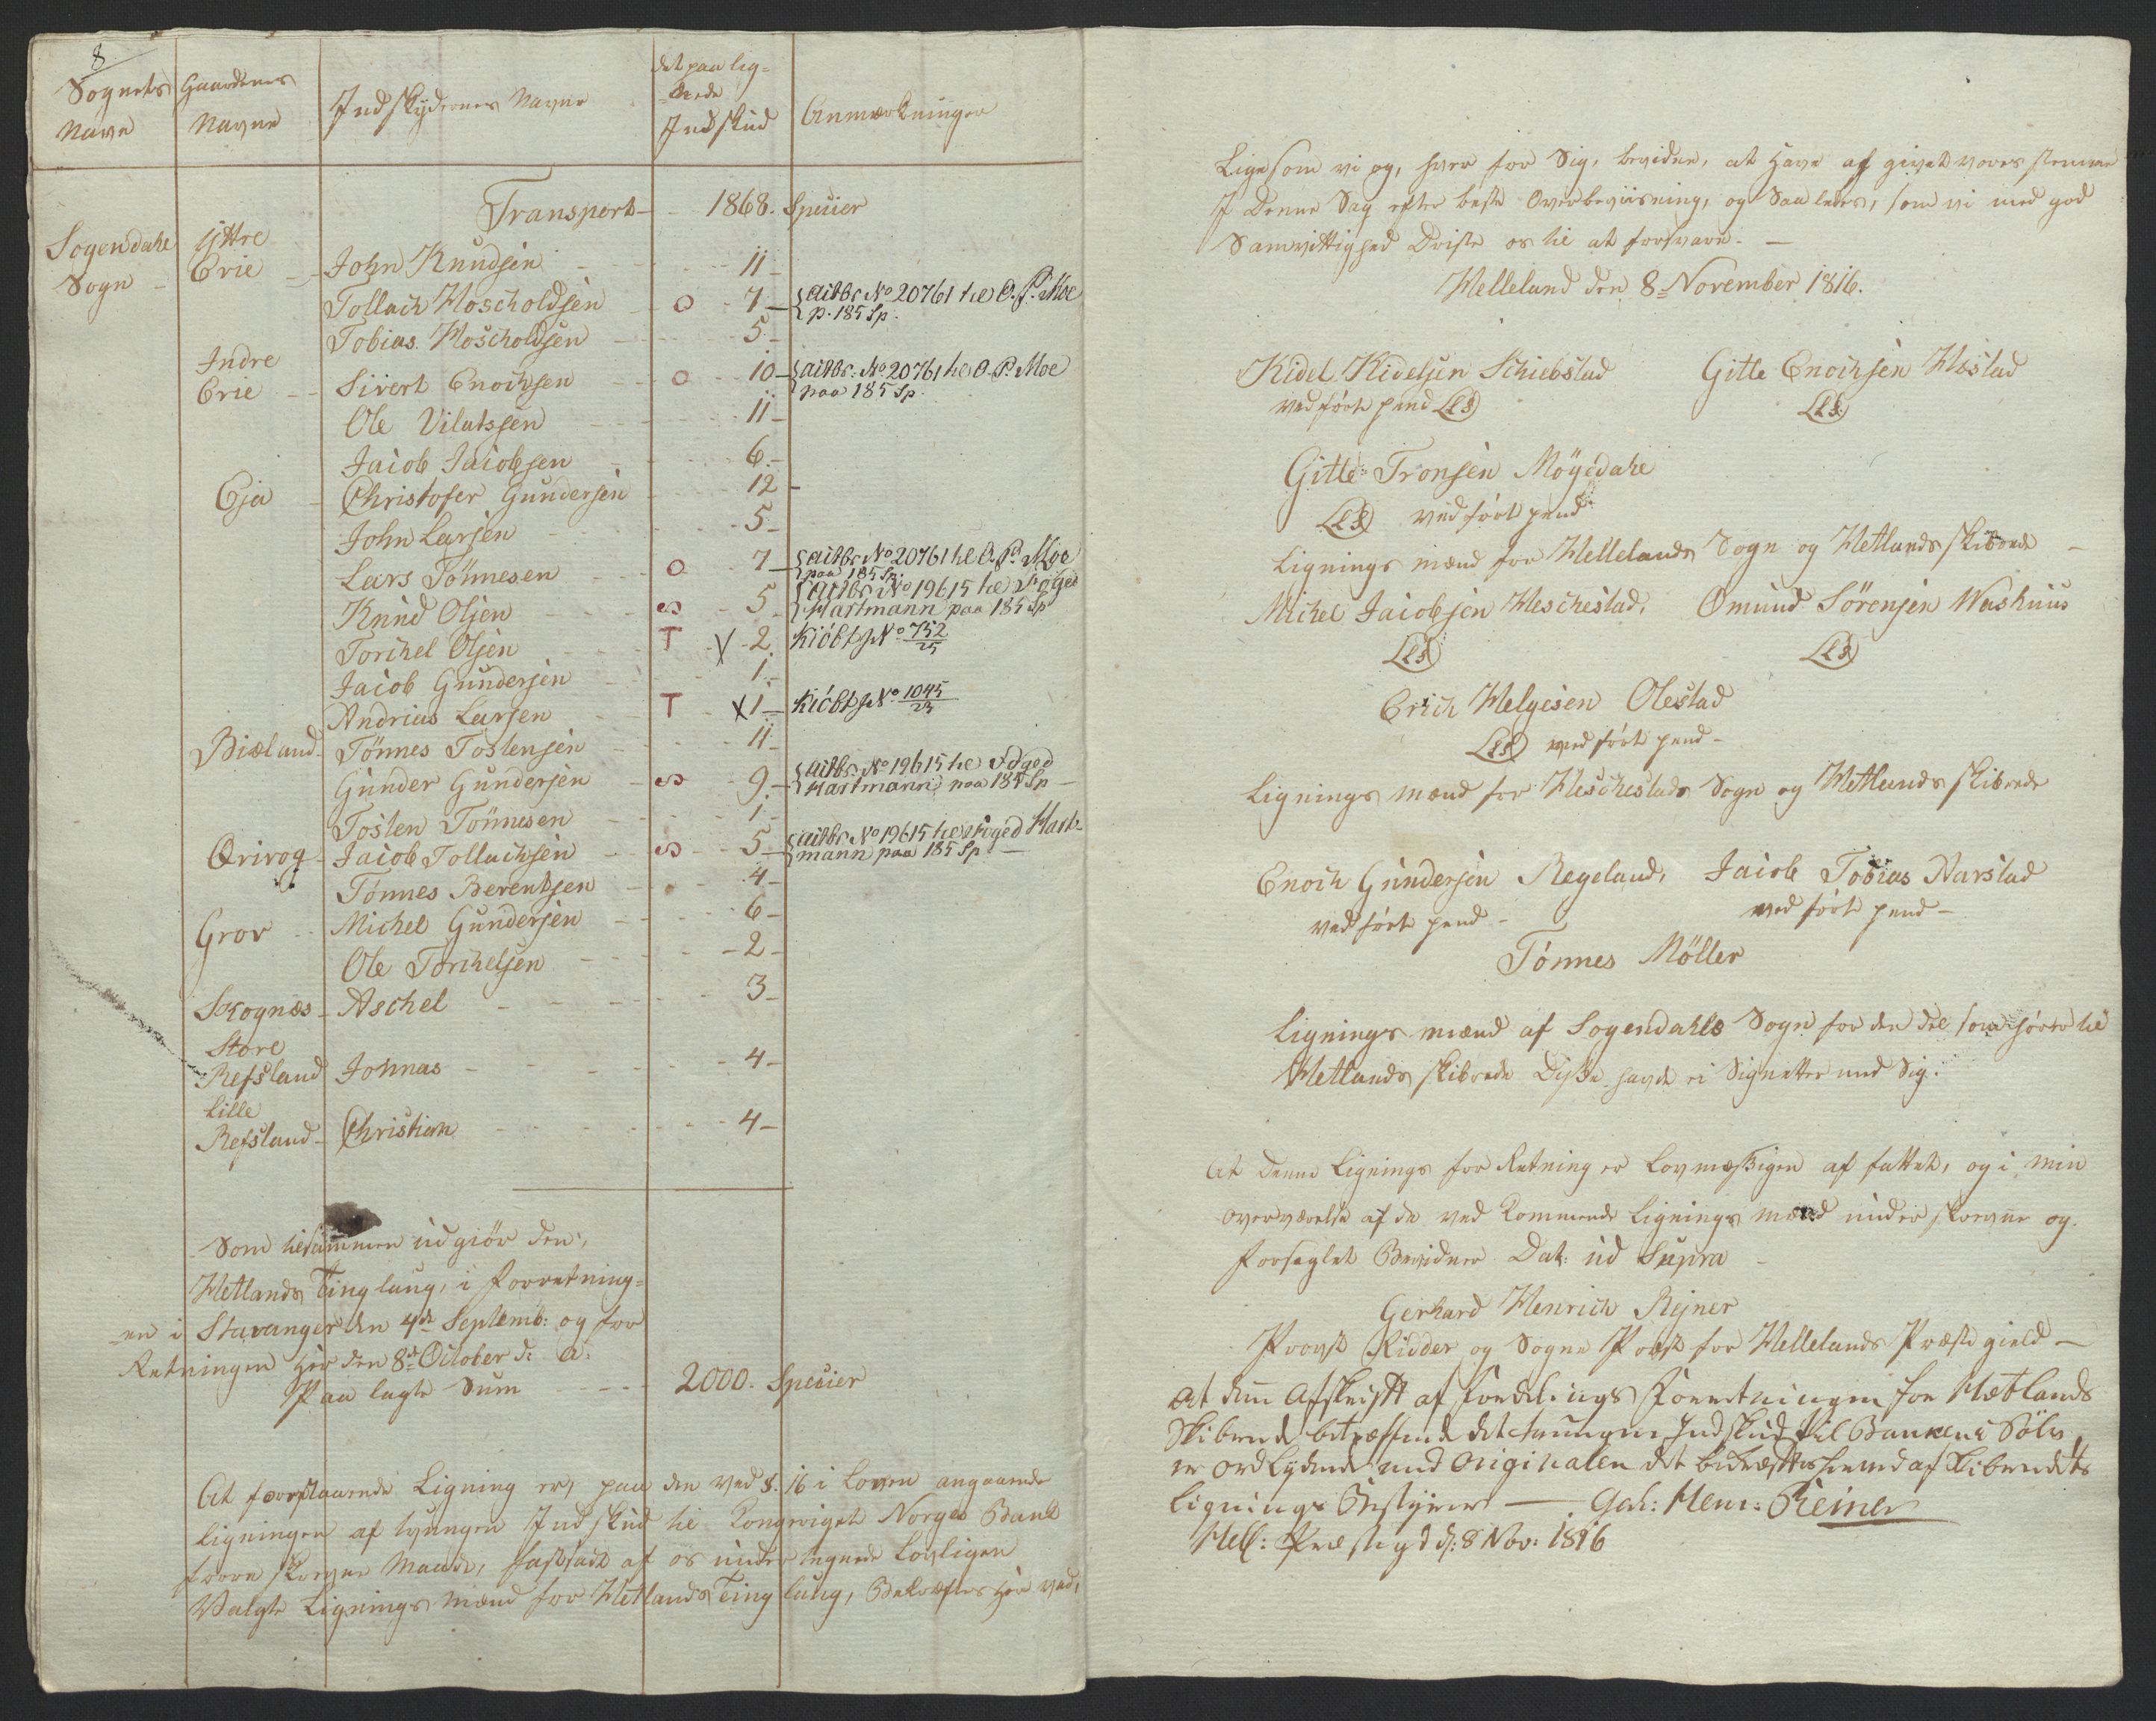 8
Sognets Navn | Gaardenes Navne | Indskydernes Navne | det paa lig=nede Indskud | Anmærkninger
Transport - 1868. Specier
Sogendahl Sogn - Yttre Erie - John Knudsen - 11 -
Tollach Hoscholdsen - O 7 - { aitbr No 20761 til O. P. Moe p. 185 Sp.
Tobias Hoscholdsen - 5 -
Indre Erie - Sivert Enochsen - O 10 - { aitbr. No 20761 til O. P. Moe paa 185 Sp.
Ole Vilutssen - 11 -
Jacob Jacobsen - 6 -
Eja - Christofer Gundersen - 12 -
John Larsen - 5 -
Lars Tönnesen - O 7 - { aitbr No 20761 til O. P. Moe paa 185 Sp.
Knud Olsen - S 5 - { aitbr No 19615 til Foged Hartmann paa 185 Sp
Torchel Olsen - T X 2. Kiöbt No 752/25
Jacob Gundersen - 1 -
Andrias Larsen - T X 1 - Kiöbt No 1045/23
Biæland - Tönnes Tostensen - 11 -
Gunder Gundersen - S 9 - { aitbr No 19615 til Foged Hartmann paa 185 Sp -
Tosten Tönnesen - 1 -
Qvivog - Jacob Tollachsen - S 5 - { aitbr No 19615 til Foged Hart=mann paa 185 Sp -
Tönnes Berentsen - 4 -
Grov - Michel Gundersen - 6 -
Ole Torchelsen - 2 -
Skognæs - Aschel - 3 -
Store Refsland Johnas - 4 -
Lille Refsland - Christian - 4 -
Som tilsammen udgiör den,
Hetlands Tinglaug, i Forretning=
en i Stavanger den 4de Septemb: og for
Retningen her den 8de October d: a:
Paa lagte Sum - 2000. Specier
At forestaaende Ligning er, paa den ved §. 16 i Loven angaaende
Ligningen af tvungen Indskud til Kongeriget Norges Bank
foreskrevne Maade, fastsadt af os undertegnede Lovligen
Valgte Lignings mænd for Hetlands Tinglaug, Bekræftes her ved,
Ligesom vi og, hver for Sig, bevidne, at have afgivet vores stemme
I denne Sag efter beste Overbeviisning, og Saaledes, som vi med god
Samvittighed Driste os til at forsvare. -
Helleland den 8de November 1816.
Kidel Kidelsen Schiebstad Gitle Enochsen Hæstad
med fört pend (LS) (LS)
Gitle Tronsen Mögedahl
(LS) med fört pend
Lignings mænd for Hellelands Sogn og Hetlands skibrede -
Michel Jacobsen Heschestad, Omund Sörensen Washuus
(LS) (LS)
Erich Helgesen Olestad
(LS) med fört pend -
Lignings mænd for Heschestads Sogn og Hetlands skibrede
Enoch Gundersen Regeland, Jacob Tobias Narstad
med fört pend - med fört pend -
Tönnes Möller
Lignings mænd af Sogendahls Sogn for den del som hörer til
Hetlands skibrede Disse havde ei Signetter med Sig.
At denne Lignings forretning er Lovmæssigen af fattet, og i min
overværelse af de ved kommende Lignings mænd under skrevne og
forseglet Bevidner Dat: ud Supra -
Gerhard Henrich Rejner
Provst Ridder og Sogne Præst for Hellelands Præste gield -
At denne Afskrift af Fordelings Forretningen for Hætlands
Skibrede betræffende det tvungne Indskud til Bankens Sölv
er ordlydende med Originalen det bekræfter herved af Skibredets
Lignings Bestyrer - Gerh: Henr: Reiner
Hell: Præstegd d: 8 Nov: 1816